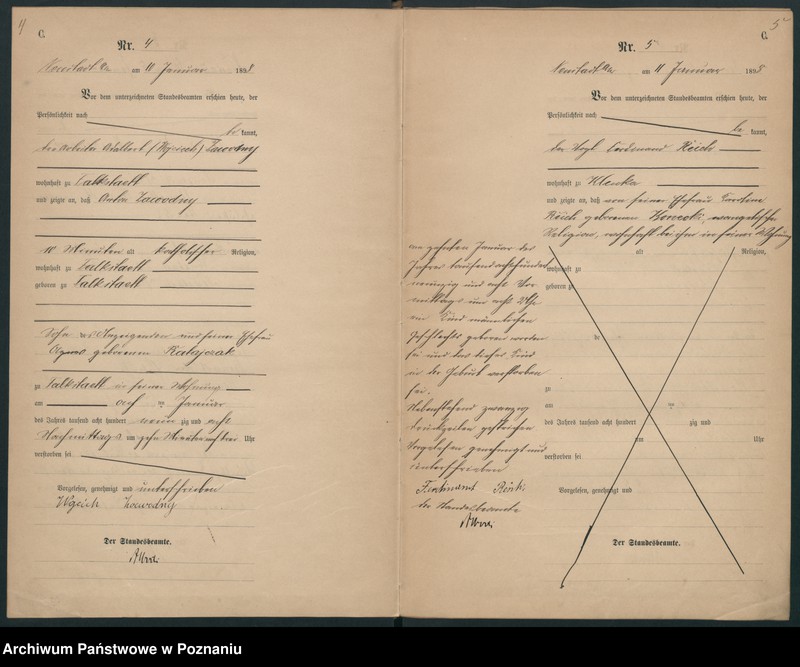 4
C.
Nr. 4
am 11 Januar 1898
Vor dem unterzeichneten Standesbeamten erschien heute, der
Persönlichkeit nach
be kannt,
der Arbeiter Adalbert (Wojciech) Zawodny
wohnhaft zu Salkstaett
und zeigte an, daß Anton Zawodny
10 Minuten alt katholischer Religion,
wohnhaft zu Salkstaett
geboren zu Salkstaett
Sohn des Anzeigenden und seiner Ehefrau
Agnes geborenen Ratajczak
zu Salkstaett in seiner Wohnung
am ten Januar
des Jahres tausend acht hundert neun zig und acht
Nachmittags um zehn Uhr
verstorben sei
Vorgelesen, genehmigt und unterschrieben
Wojciech Zawodny
Der Standesbeamte.
5
C.
Nr. 5
am 11 Januar 1898
Vor dem unterzeichneten Standesbeamten erschien heute, der
Persönlichkeit nach
be kannt,
der Vogt Ferdinand Reich
wohnhaft zu Klenka
und zeigte an, daß von seiner Ehefrau
Reich geborenen evangelischer
Religion, wohnhaft bei ihm in seiner Wohnung
alt Religion,
wohnhaft zu
geboren zu
de
zu
am ten
des Jahres tausend acht hundert zig und
um Uhr
verstorben sei
Vorgelesen, genehmigt und
Der Standesbeamte.
am zehnten Januar des
Jahres tausendachthundert
neunzig und acht Vor
mittags um acht Uhr
ein Kind männlichen
Geschlechts geboren worden
sei und daß dieses Kind
in der Geburt verstorben
sei.
Nebenstehend zwanzig
Druckzeilen gestrichen
Vorgelesen genehmigt und
unterschrieben
Der Standesbeamte
Archiwum Państwowe w Poznaniu